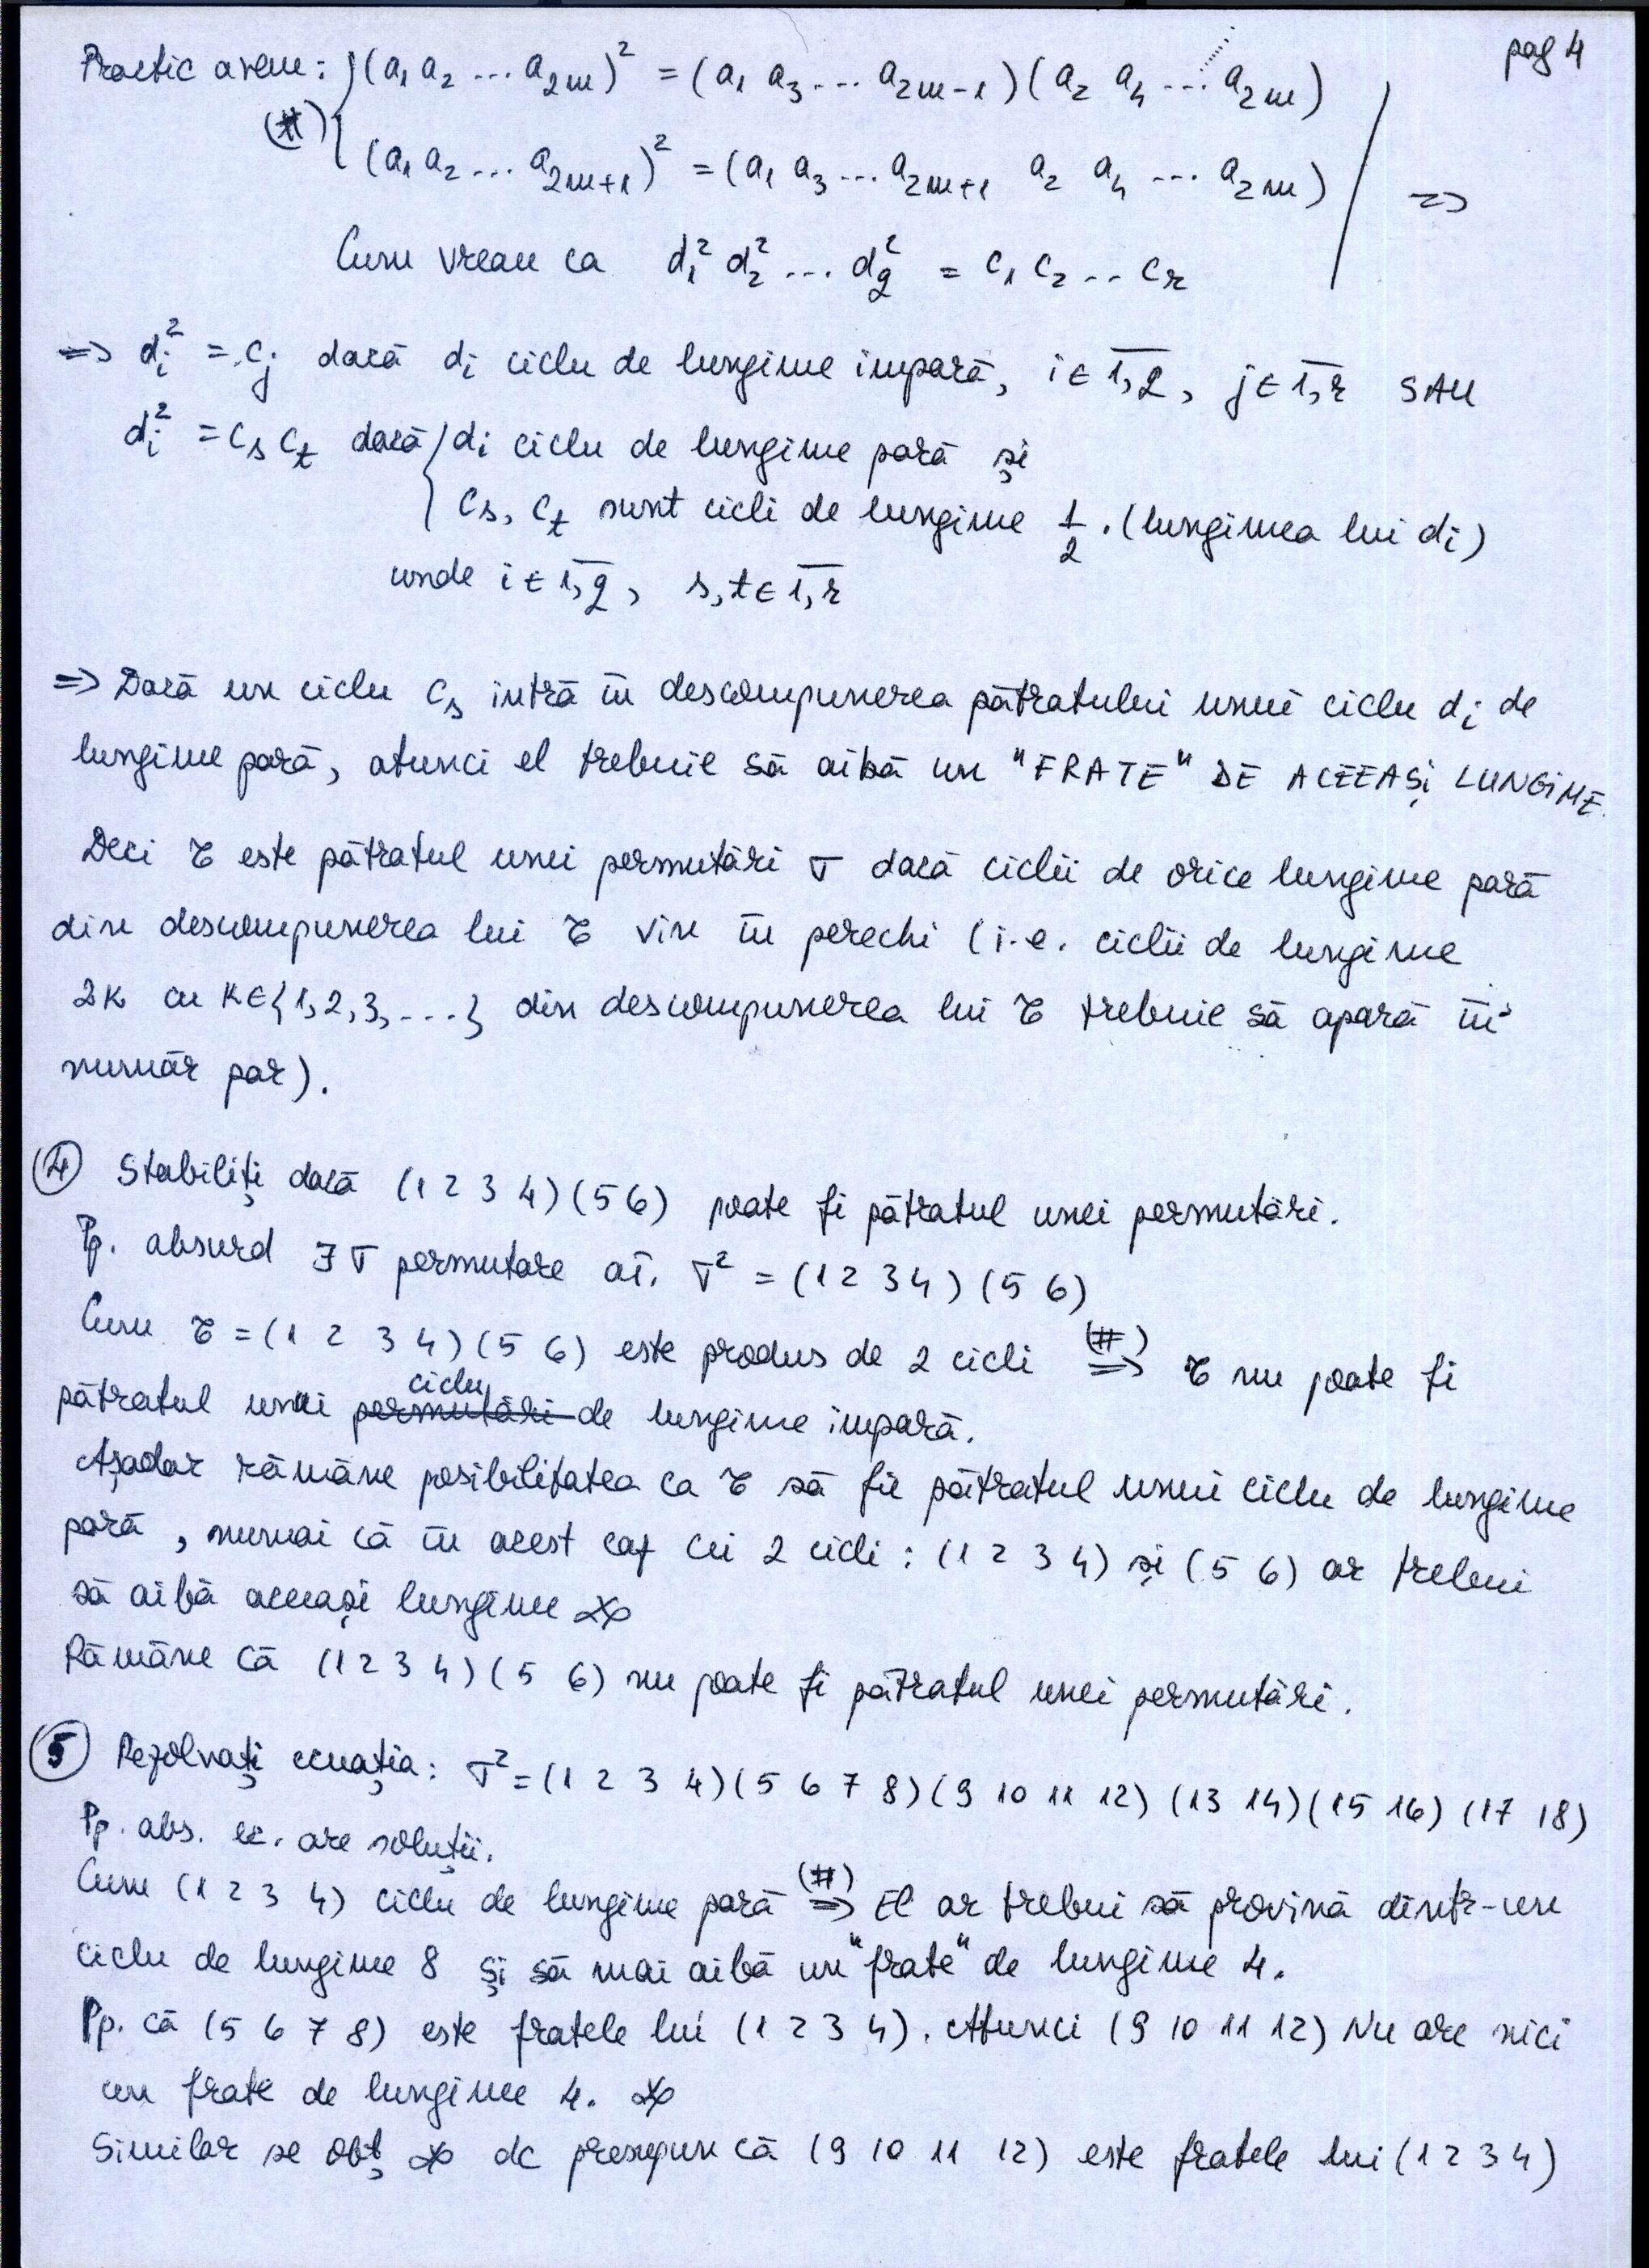 pag 4
Practic avem: { (a₁ a₂ ... a₂ₘ)² = (a₁ a₃ ... a₂ₘ₋₁)(a₂ a₄ ... a₂ₘ)
(#) { (a₁ a₂ ... a₂ₘ₊₁)² = (a₁ a₃ ... a₂ₘ₊₁ a₂ a₄ ... a₂ₘ) | =>
Cum vreau ca d₁² d₂² ... d_q² = c₁ c₂ .. c_r
=> dᵢ² = cⱼ dacă dᵢ ciclu de lungime impară, i ∈ 1,q, j ∈ 1,r SAU
dᵢ² = cₛ cₜ dacă { dᵢ ciclu de lungime pară și
cₛ, cₜ sunt cicli de lungime 1/2 · (lungimea lui dᵢ)
unde i ∈ 1,q, s,t ∈ 1,r
=> Dacă un ciclu cₛ intră în descompunerea pătratului unui ciclu dᵢ de
lungime pară, atunci el trebuie să aibă un "FRATE" DE ACEEAȘI LUNGIME.
Deci τ este pătratul unei permutări σ dacă ciclii de orice lungime pară
din descompunerea lui τ vin în perechi (i.e. ciclii de lungime
2k cu k∈{1,2,3,...} din descompunerea lui τ trebuie să apară în
număr par).
(4) Stabiliți dacă (1 2 3 4)(5 6) poate fi pătratul unei permutări.
Pp. absurd ∃ σ permutare aî. σ² = (1 2 3 4)(5 6)
Cum τ = (1 2 3 4)(5 6) este produs de 2 cicli (#) => τ nu poate fi
pătratul unui permutări ciclu de lungime impară.
Așadar rămâne posibilitatea ca τ să fie pătratul unui ciclu de lungime
pară, numai că în acest caz cei 2 cicli: (1 2 3 4) și (5 6) ar trebui
să aibă aceeași lungime
Rămâne că (1 2 3 4)(5 6) nu poate fi pătratul unei permutări.
(5) Rezolvați ecuația: σ² = (1 2 3 4)(5 6 7 8)(9 10 11 12)(13 14)(15 16)(17 18)
Pp. abs. ec. are soluții.
Cum (1 2 3 4) ciclu de lungime pară (#) => El ar trebui să provină dintr-un
ciclu de lungime 8 și să mai aibă un "frate" de lungime 4.
Pp. că (5 6 7 8) este fratele lui (1 2 3 4). Atunci (9 10 11 12) Nu are nici
un frate de lungime 4.
Similar se obț dc presupun că (9 10 11 12) este fratele lui (1 2 3 4)